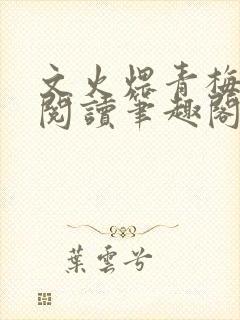 文火煨青梅
閱讀筆趣閣
葉雲兮